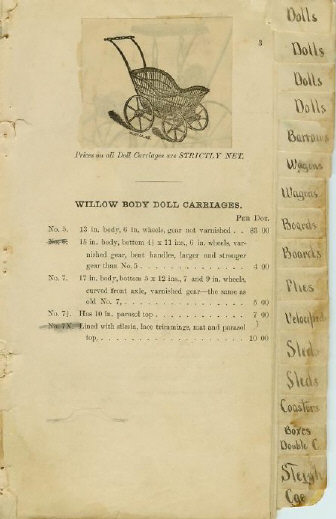 3
Prices on all Doll Carriages are STRICTLY NET.
WILLOW BODY DOLL CARRIAGES.
PER DOZ.
No. 5. 13 in. body, 6 in. wheels, gear not varnished . . $3 00
No. 6. 15 in. body, bottom 4½ x 11 ins., 6 in. wheels, var-
nished gear, bent handles, larger and stronger
gear than No. 5 . . 4 00
No. 7. 17 in. body, bottom 5 x 12 ins., 7 and 9 in. wheels,
curved front axle, varnished gear—the same as
old No. 7, . . 5 00
No. 7½. Has 10 in. parasol top . . 7 00
No. 7X. Lined with silesia, lace trimmings, mat and parasol
top, . . 10 00
Dolls
Dolls
Dolls
Dolls
Barrows
Wagons
Wagons
Boards
Boards
Velociped
Sleds
Sleds
Coasters
Boxes
Double C
Sleigh